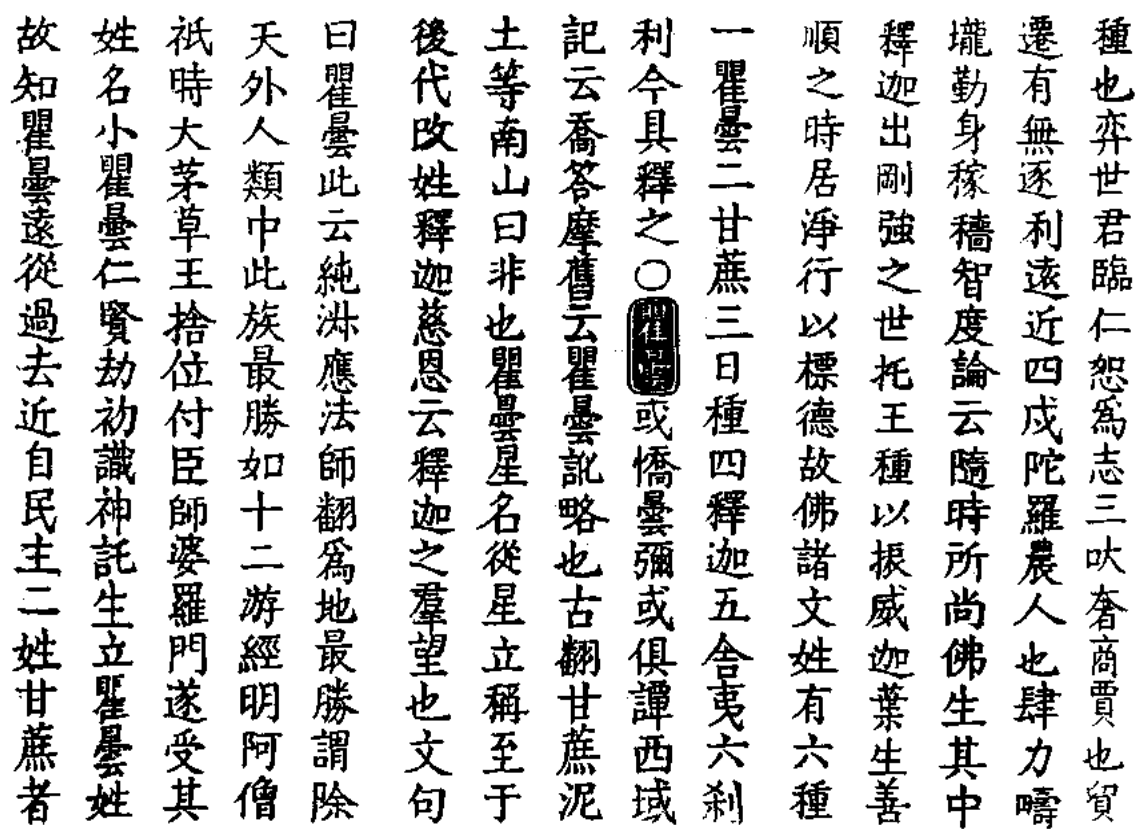 種也弈世君臨仁恕爲志三吠奢商賈也貿
遷有無逐利遠近四戍陀羅農人也肆力疇
壠勤身稼穡智度論云隨時所尚佛生其中
釋迦出剛強之世托王種以振威迦葉生善
順之時居淨行以標德故佛諸文姓有六種
一瞿曇二甘蔗三日種四釋迦五舍夷六刹
利今具釋之〇瞿曇或憍曇彌或俱譚西域
記云喬答摩舊云瞿曇訛略也古翻甘蔗泥
土等南山曰非也瞿曇星名從星立稱至于
後代改姓釋迦慈恩云釋迦之羣望也文句
曰瞿曇此云純淑應法師翻爲地最勝謂除
天外人類中此族最勝如十二游經明阿僧
祇時大茅草王捨位付臣師婆羅門遂受其
姓名小瞿曇仁賢劫初識神託生立瞿曇姓
故知瞿曇遠從過去近自民主二姓甘蔗者